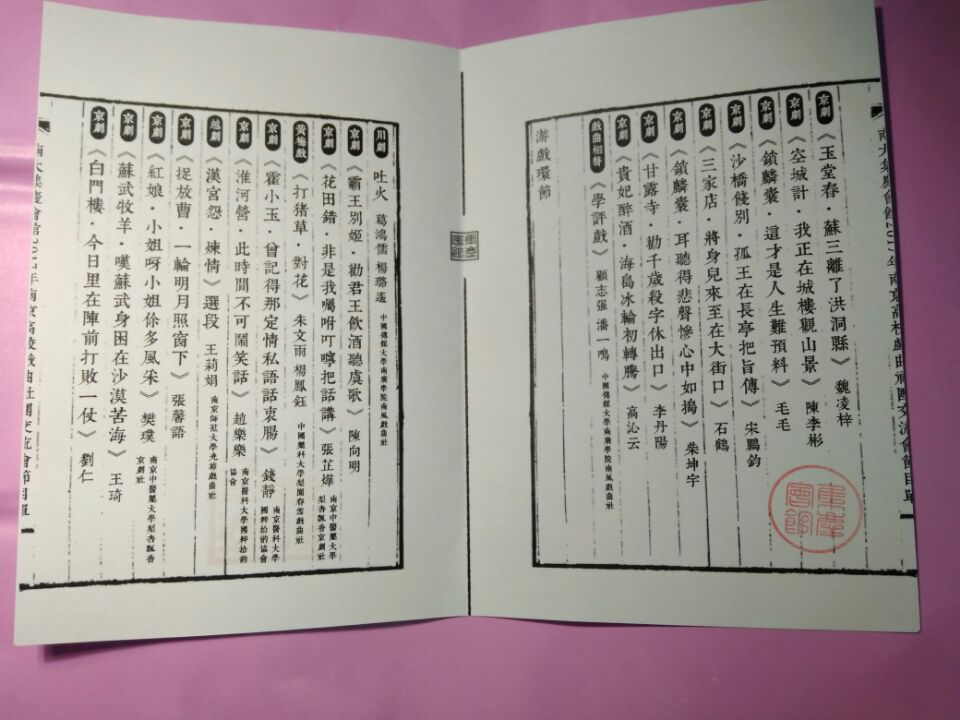 南大集慶會館2017年南京高校戲曲社團交流會節目單
京劇 《玉堂春·蘇三離了洪洞縣》 魏凌梓
京劇 《空城計·我正在城樓觀山景》 陳李彬
京劇 《鎖麟囊·這才是人生難預料》 毛毛
京劇 《沙橋餞別·孤王在長亭把旨傳》 宋鵬鈞
京劇 《三家店·將身兒來至在大街口》 石鶴
京劇 《鎖麟囊·耳聽得悲聲慘心中如搗》 柴坤宇
京劇 《甘露寺·勸千歲殺字休出口》 李丹陽
京劇 《貴妃醉酒·海島冰輪初轉騰》 高沁云
戲曲相聲 《學評戲》 顧志强 潘一鳴 中國傳媒大學南廣學院南風戲曲社
游戲環節
集慶會館
川劇 吐火 葛鴻儒 楊璐遙 中國傳媒大學南廣學院南風戲曲社
京劇 《霸王別姬·勸君王飲酒聽虞歌》 陳向明
京劇 《花田錯·非是我囑咐叮嚀把話講》 張芷燁 南京中醫藥大學梨杏飄香京劇社
黃梅戲 《打猪草·對花》 朱文雨 楊鳳鈺 中國藥科大學梨園春雪戲曲社
京劇 《霍小玉·曾記得那定情私語話衷腸》 錢靜 南京醫科大學國粹拾韵協會
京劇 《淮河營·此時間不可鬧笑話》 趙樂樂 南京醫科大學國粹拾韵協會
越劇 《漢宮怨·煉情》選段 王莉娟 南京師范大學光裕戲曲社
京劇 《捉放曹·一輪明月照窗下》 張馨語
京劇 《紅娘·小姐呀小姐你多風采》 樊璞 南京中醫藥大學梨杏飄香京劇社
京劇 《蘇武牧羊·嘆蘇武身困在沙漠苦海》 王琦
京劇 《白門樓·今日里在陣前打敗一仗》 劉仁
南大集慶會館2017年南京高校戲曲社團交流會節目單